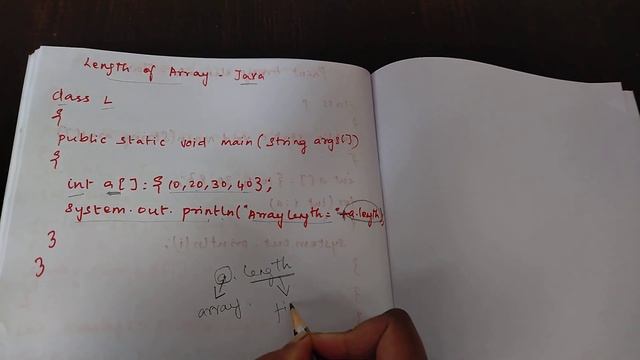 Length of Array - Java
class L
{
public static void main(String args[])
{
int a[] = {10,20,30,40};
System.out.println("Array length = "+a.length)
}
}
a. length
array. fi